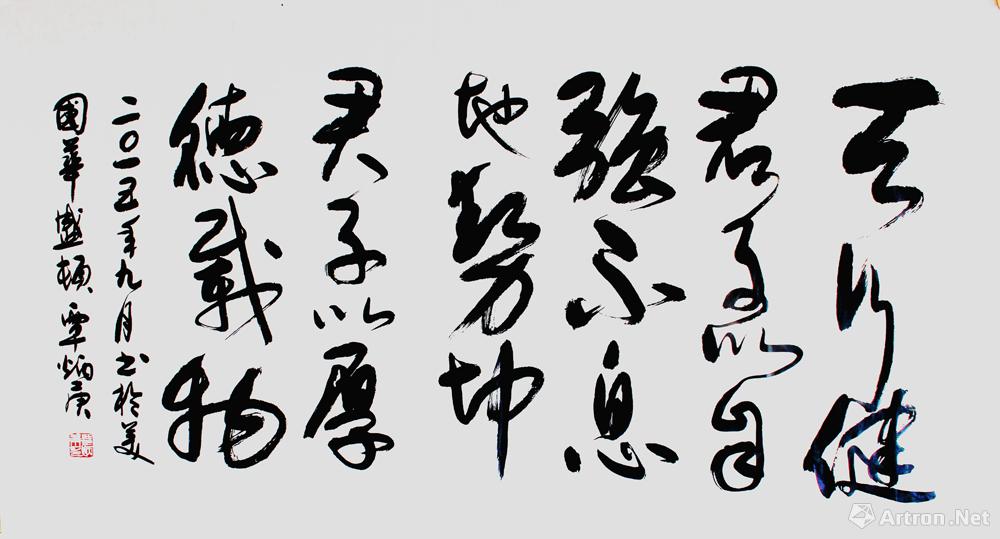 天行健
君子以自
強不息
地勢坤
君子以厚
德載物
二〇一五年九月书於美
國華盛頓覃炳庚
Artron.Net